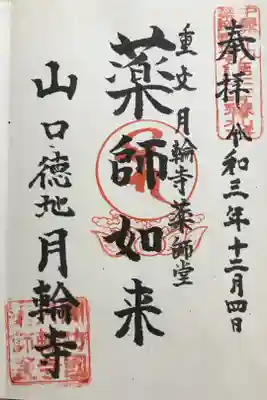 奉拝 令和三年十二月四日
重文 月輪寺薬師堂
薬師如来
山口・徳地 月輪寺